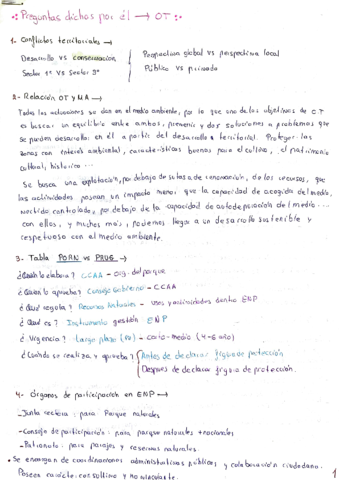 ·: Preguntas dichas por él → OT :·
1- Conflictos territoriales →
Desarrollo vs conservación
Sector 1º vs Sector 3º
Perspectiva global vs perspectiva local
Público vs privado
2- Relación OT y MA →
Todas las actuaciones se dan en el medio ambiente, por lo que uno de los objetivos de OT
es buscar un equilibrio entre ambos, prevenir y dar soluciones a problemas que
se puedan desarrollar en él a partir del desarrollo territorial. Proteger las
zonas con interés ambiental, características buenas para el cultivo, el patrimonio
cultural, histórico ...
Se busca una explotación, por debajo de su tasa de renovación, de los recursos, que
las actividades posean un impacto menor que la capacidad de acogida del medio,
vertido controlado, por debajo de la capacidad de autodepuración del medio ...
con ellas, y muchas más, podemos llegar a un desarrollo sostenible y
respetuoso con el medio ambiente.
3- Tabla PORN vs PRUG →
¿Quién lo elabora? CCAA - org. del parque
¿Quién lo aprueba? Consejo Gobierno - CCAA
¿Qué regula? Recursos Naturales - usos y actividades dentro ENP
¿Qué es? Instrumento gestión ENP
¿Vigencia? Largo plazo (10) - corto-medio (4-6 año)
¿Cuándo se realiza y aprueba? Antes de declarar figura de protección
Después de declarar figura de protección.
4- Órganos de participación en ENP →
- Junta rectora : para Parque naturales
- Consejo de participación : para parque naturales + nacionales
- Patronato : para parajes y reservas naturales.
• Se encargan de coordinaciones administrativas públicas y colaboración ciudadana.
Poseen carácter consultivo y no vinculante.
1